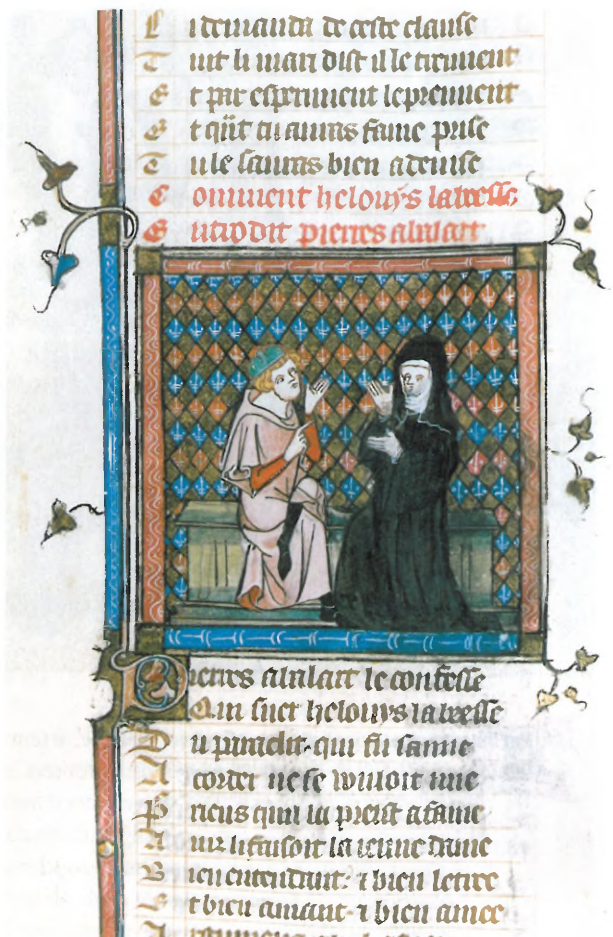 L i demanda de ceste clause
T uit li mari dist il le treuuent
E t par esperiment le preuuent
E t qñt tu auras fame prise
T u le sauras bien a deuise
C omment heloys labeesse
pierres abalart
Pierres abalart le confesse
Q ue suer heloys labeesse
D u paraclit· qui fu samie
A corder ne se vouloit mie
P riens quil la preist a fame
A inz li faisoit la ieune dame
B ien entendant· ⁊ bien letree
E t bien amant· ⁊ bien amee